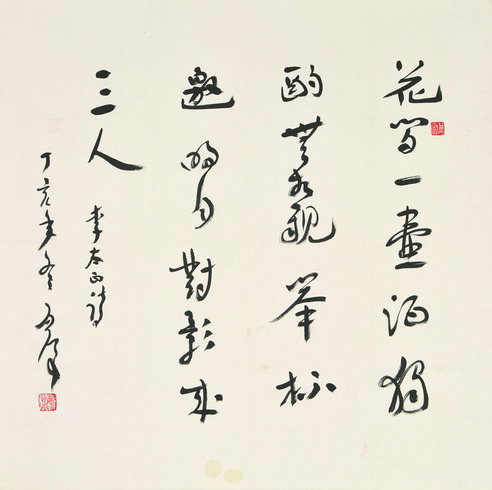 花間一壺酒獨
酌無相親舉杯
邀明月對影成
三人 李太白詩
丁亥年冬